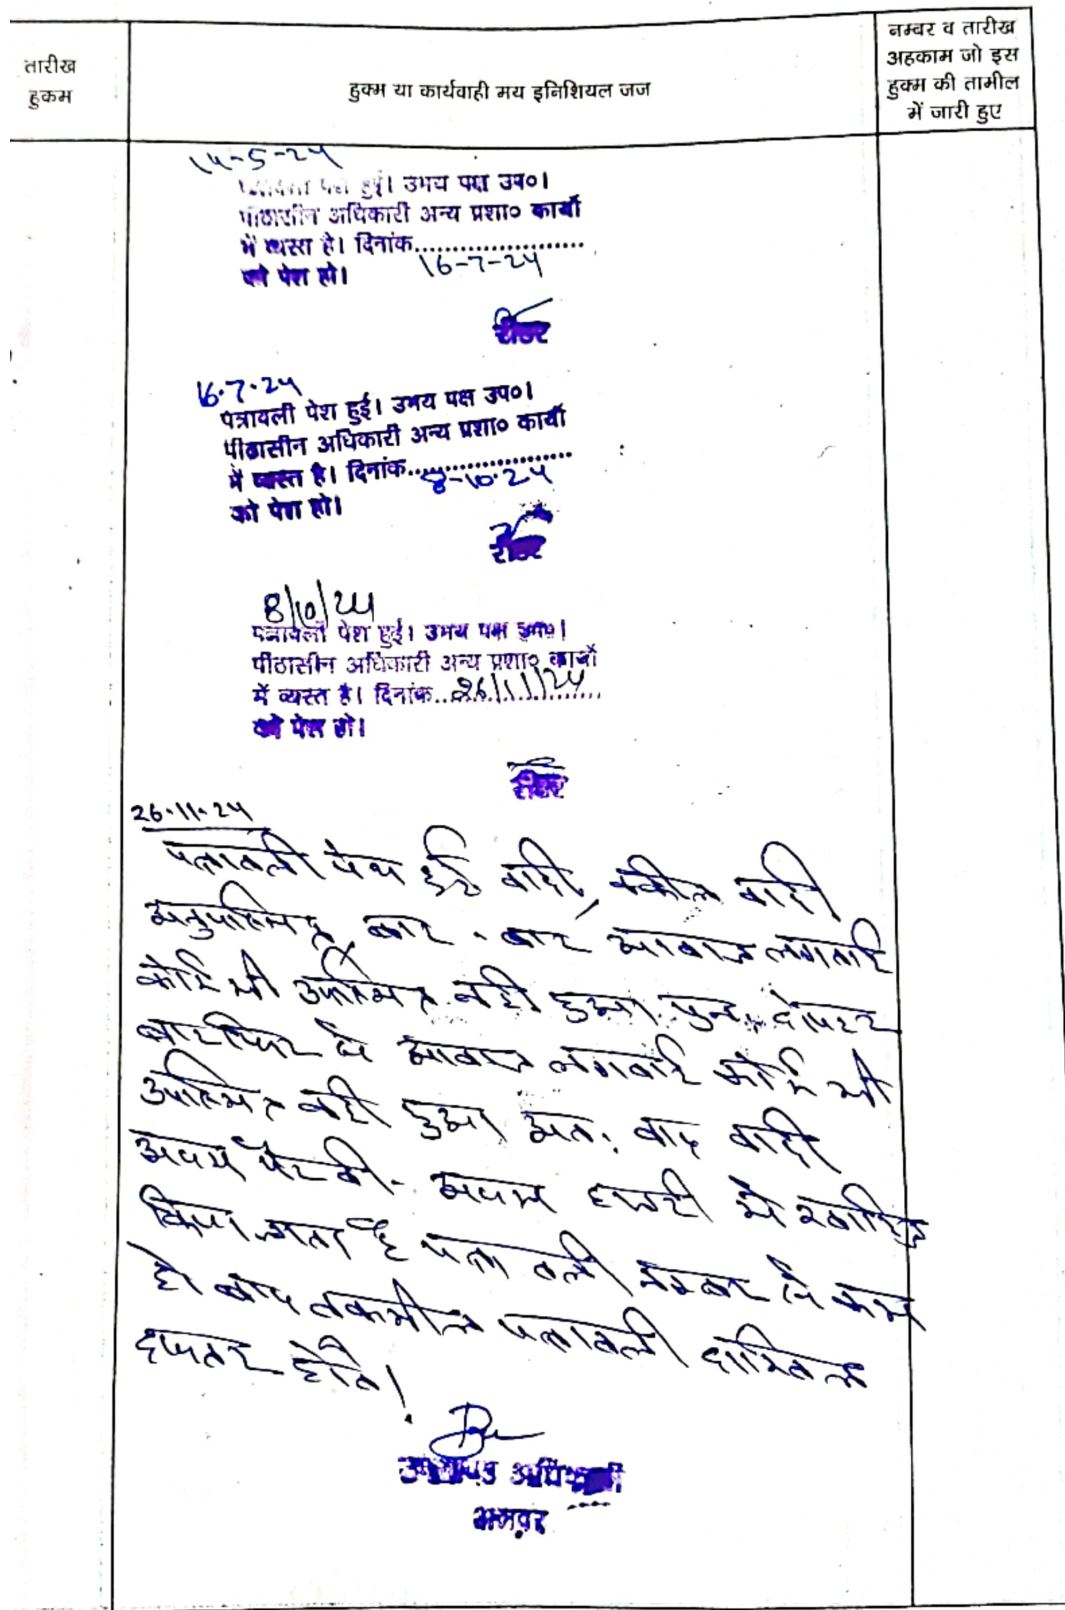 तारीख
हुकम
हुक्म या कार्यवाही मय इनिशियल जज
नम्बर व तारीख
अहकाम जो इस
हुक्म की तामील
में जारी हुए
14-5-24
पत्रावली पेश हुई। उभय पक्ष उप०।
पीठासीन अधिकारी अन्य प्रशा० कार्यो
में व्यस्त है। दिनांक......................
16-7-24
को पेश हो।
रीडर
16.7.24
पत्रावली पेश हुई। उभय पक्ष उप०।
पीठासीन अधिकारी अन्य प्रशा० कार्यो
में व्यस्त है। दिनांक......................
8-10.24
को पेश हो।
रीडर
8/10/24
पत्रावली पेश हुई। उभय पक्ष उप०।
पीठासीन अधिकारी अन्य प्रशा० कार्यो
में व्यस्त है। दिनांक..26/11/24
को पेश हो।
रीडर
26-11-24
पत्रावली पेश हुई वादी, वकील वादी
अनुपस्थित बार - बार आवाज लगवाई
कोई भी उपस्थित नही हुआ। पुनः दोपहर
बाद फिर से आवाज लगवाई कोई भी
उपस्थित नही हुआ अतः वाद वादी
अदम पैरवी - अदम हाजरी मे खारिज
किया जाता है पत्रावली नम्बर से कम
हो बाद तकमील पत्रावली दाखिल
दफ्तर होवे।
उपखण्ड अधिकारी